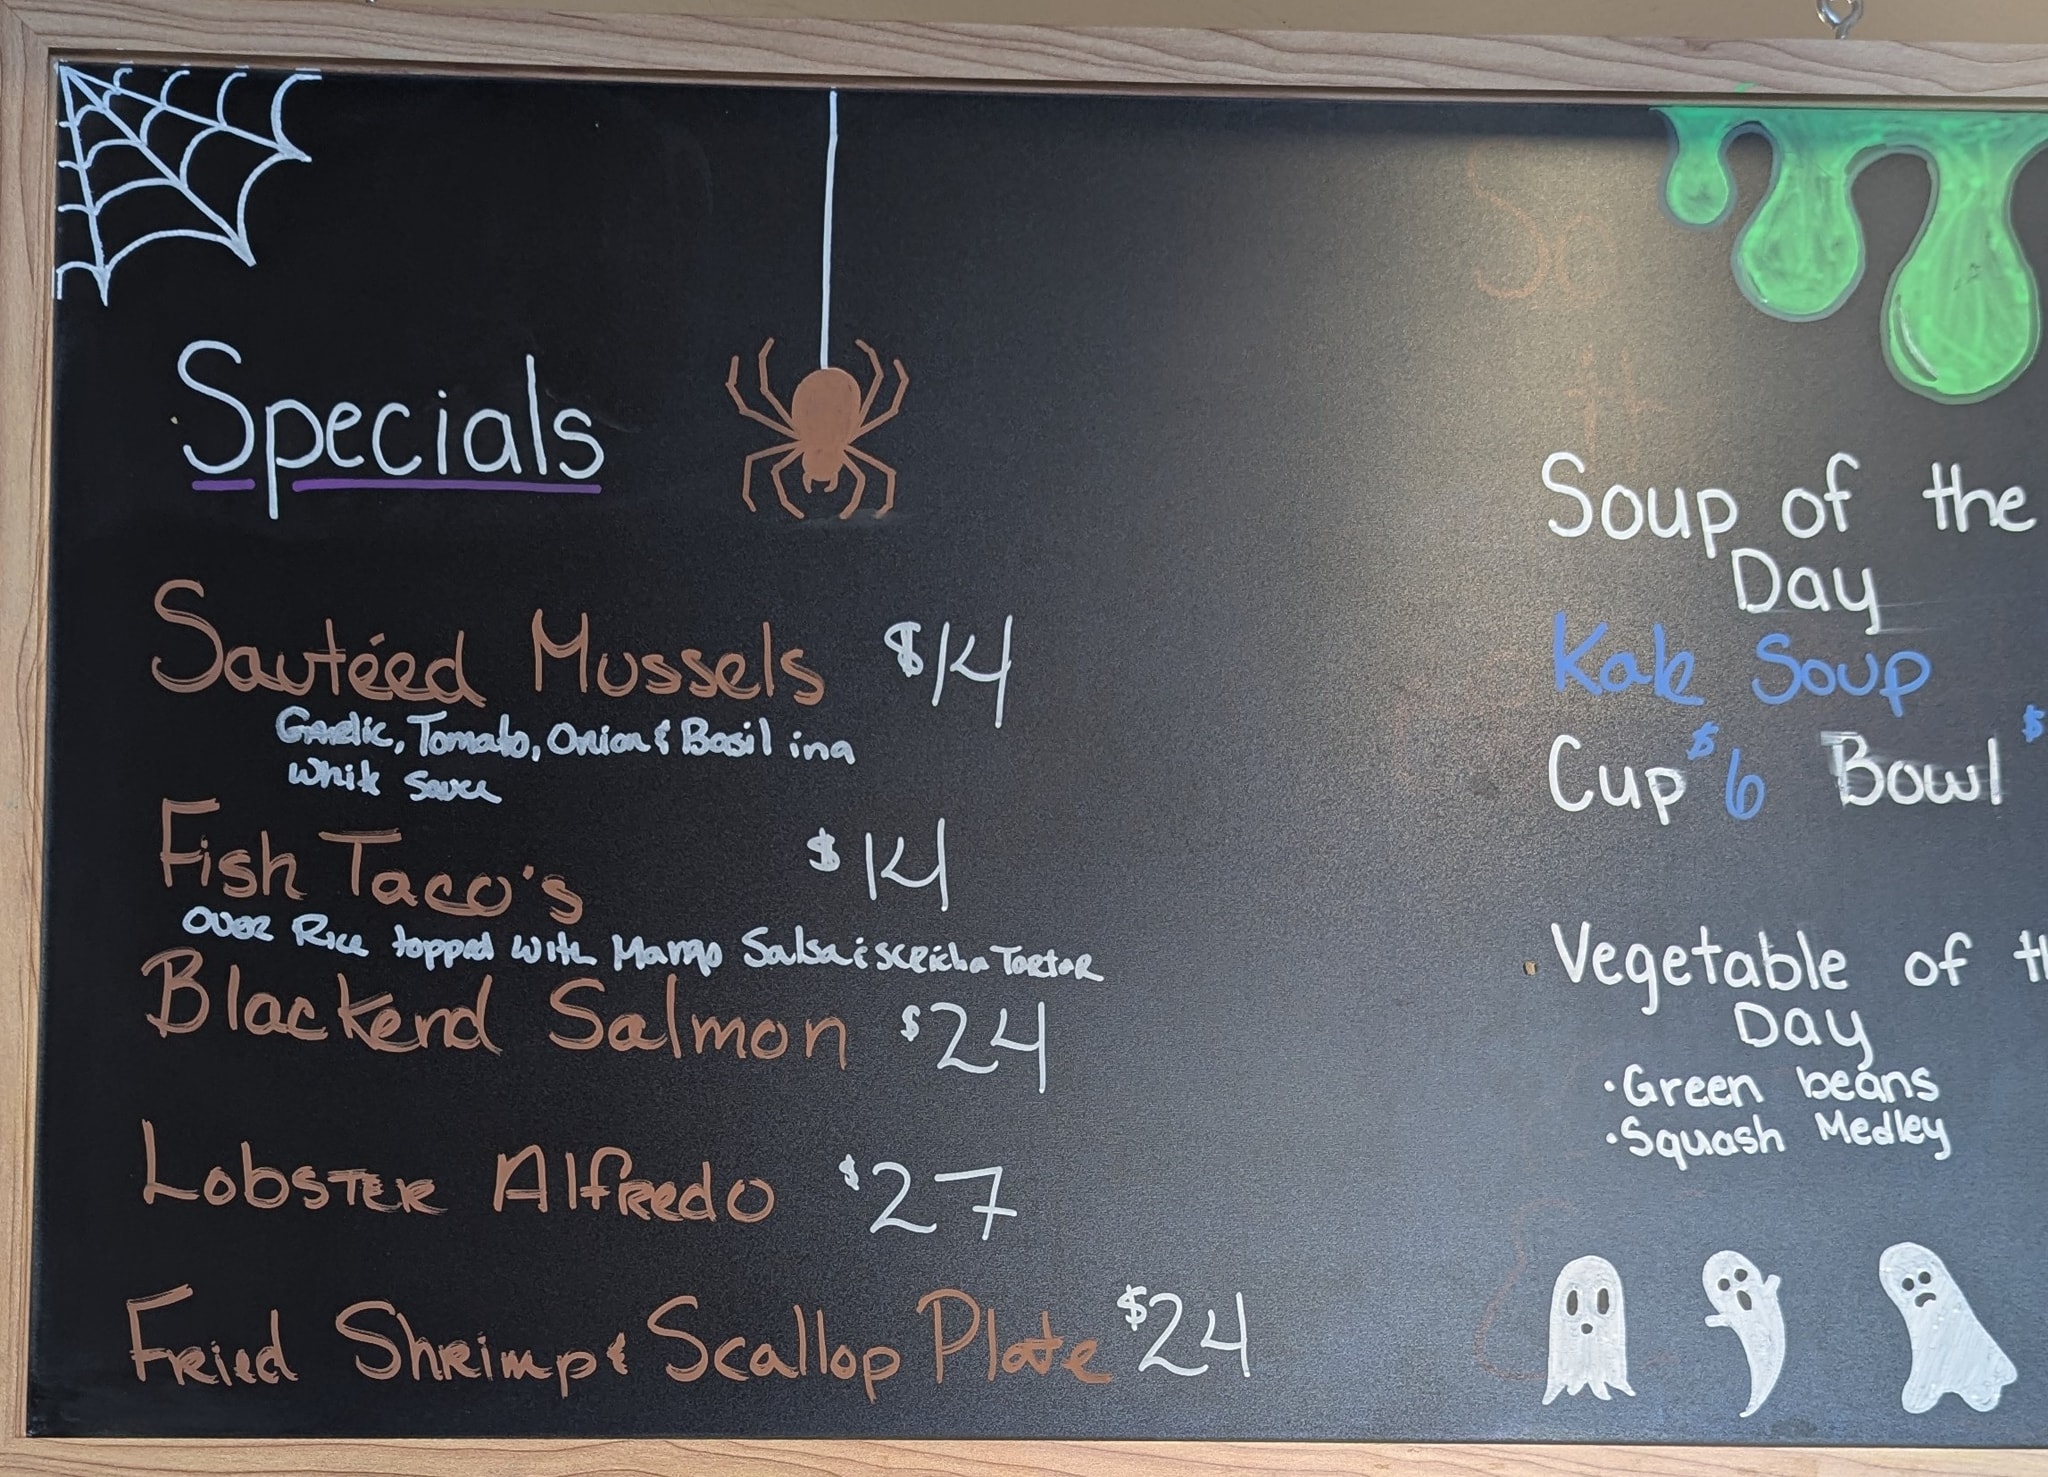 Specials
Sautéed Mussels $14
Garlic, Tomato, Onion & Basil in a
White Sauce
Fish Taco's $14
Over Rice topped with Mango Salsa & sericha Tartar
Blackend Salmon $24
Lobster Alfredo $27
Fried Shrimp & Scallop Plate $24
Soup of the
Day
Kale Soup
Cup $6 Bowl $
Vegetable of th
Day
• Green beans
• Squash Medley